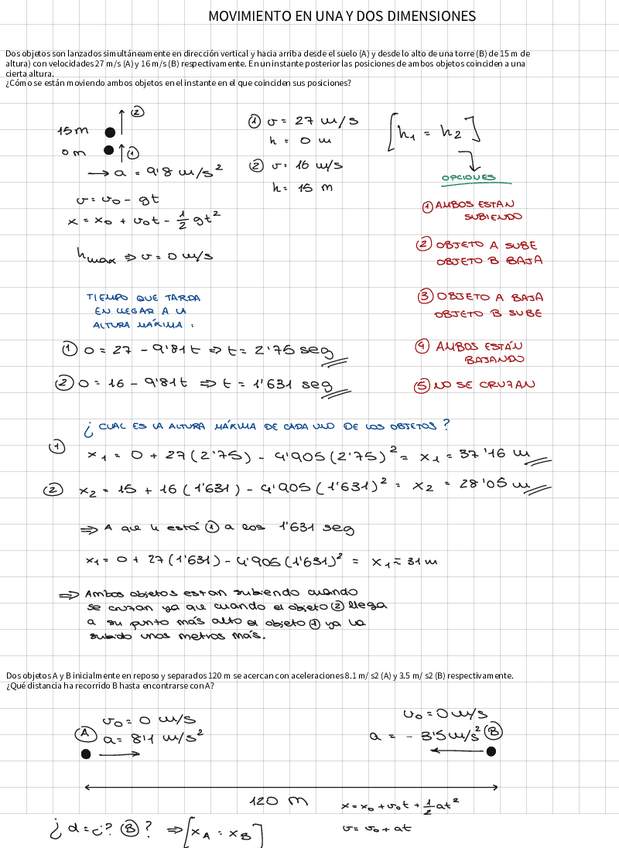 MOVIMIENTO EN UNA Y DOS DIMENSIONES
Dos objetos son lanzados simultáneamente en dirección vertical y hacia arriba desde el suelo (A) y desde lo alto de una torre (B) de 15 m de
altura) con velocidades 27 m/s (A) y 16 m/s (B) respectivamente. En un instante posterior las posiciones de ambos objetos coinciden a una
cierta altura.
¿Cómo se están moviendo ambos objetos en el instante en el que coinciden sus posiciones?
15 m ②
0 m ①
→ a = 9'8 m/s²
① v = 27 m/s
h = 0 m
② v = 16 m/s
h = 15 m
[h₁ = h₂]
OPCIONES
① AMBOS ESTÁN
SUBIENDO
② OBJETO A SUBE
OBJETO B BAJA
③ OBJETO A BAJA
OBJETO B SUBE
④ AMBOS ESTÁN
BAJANDO
⑤ NO SE CRUZAN
v = v₀ - gt
x = x₀ + v₀t - 1/2 gt²
hmax ⇒ v = 0 m/s
TIEMPO QUE TARDA
EN LLEGAR A LA
ALTURA MÁXIMA :
① 0 = 27 - 9'81t ⇒ t = 2'75 seg
② 0 = 16 - 9'81t ⇒ t = 1'631 seg
¿ CUAL ES LA ALTURA MÁXIMA DE CADA UNO DE LOS OBJETOS ?
① x₁ = 0 + 27(2'75) - 4'905(2'75)² = x₁ = 37'16 m
② x₂ = 15 + 16(1'631) - 4'905(1'631)² = x₂ = 28'05 m
⇒ A que h está ① a los 1'631 seg
x₁ = 0 + 27(1'631) - 4'905(1'631)² = x₁ ≈ 31 m
⇒ Ambos objetos estan subiendo cuando
se cruzan ya que cuando el objeto ② llega
a su punto más alto el objeto ① ya ha
subido unos metros más.
Dos objetos A y B inicialmente en reposo y separados 120 m se acercan con aceleraciones 8.1 m/ s2 (A) y 3.5 m/ s2 (B) respectivamente.
¿Qué distancia ha recorrido B hasta encontrarse con A?
Ⓐ v₀ = 0 m/s
a = 8'1 m/s²
v₀ = 0 m/s
a = - 3'5 m/s² Ⓑ
120 m
x = x₀ + v₀t + 1/2 at²
v = v₀ + at
¿ d = ¿? Ⓑ ? ⇒ [xA = xB]